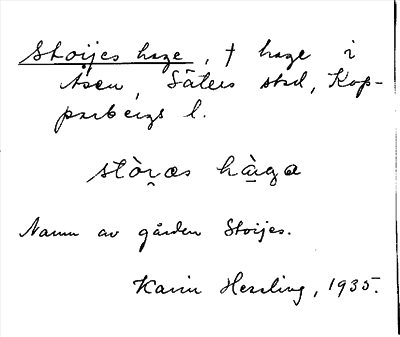 Stoijes hage, † hage i
Åsen, Säters stad, Kop-
parbergs l.
stòras hàga
Namn av gården Stoijes.
Karin Hessling, 1935.